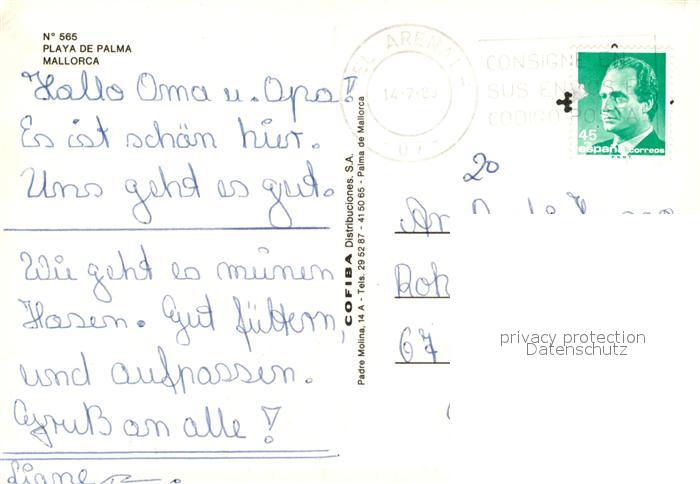 N° 565
PLAYA DE PALMA
MALLORCA
Hallo Oma u. Opa!
Es ist schön hier.
Uns geht es gut.
Wie geht es meinen
Hasen. Gut füttern,
und aufpassen.
Gruß an alle!
Liane
COFIBA Distribuciones, S.A.
Padre Molina, 14 A - Tels. 29 52 87 - 41 50 65 - Palma de Mallorca
EL ARENAL
14-7-8
CONSIGNE EN
SUS ENV
CODIGO POS
45
españa correos
F.N.M.T.
20
An
67
privacy protection
Datenschutz